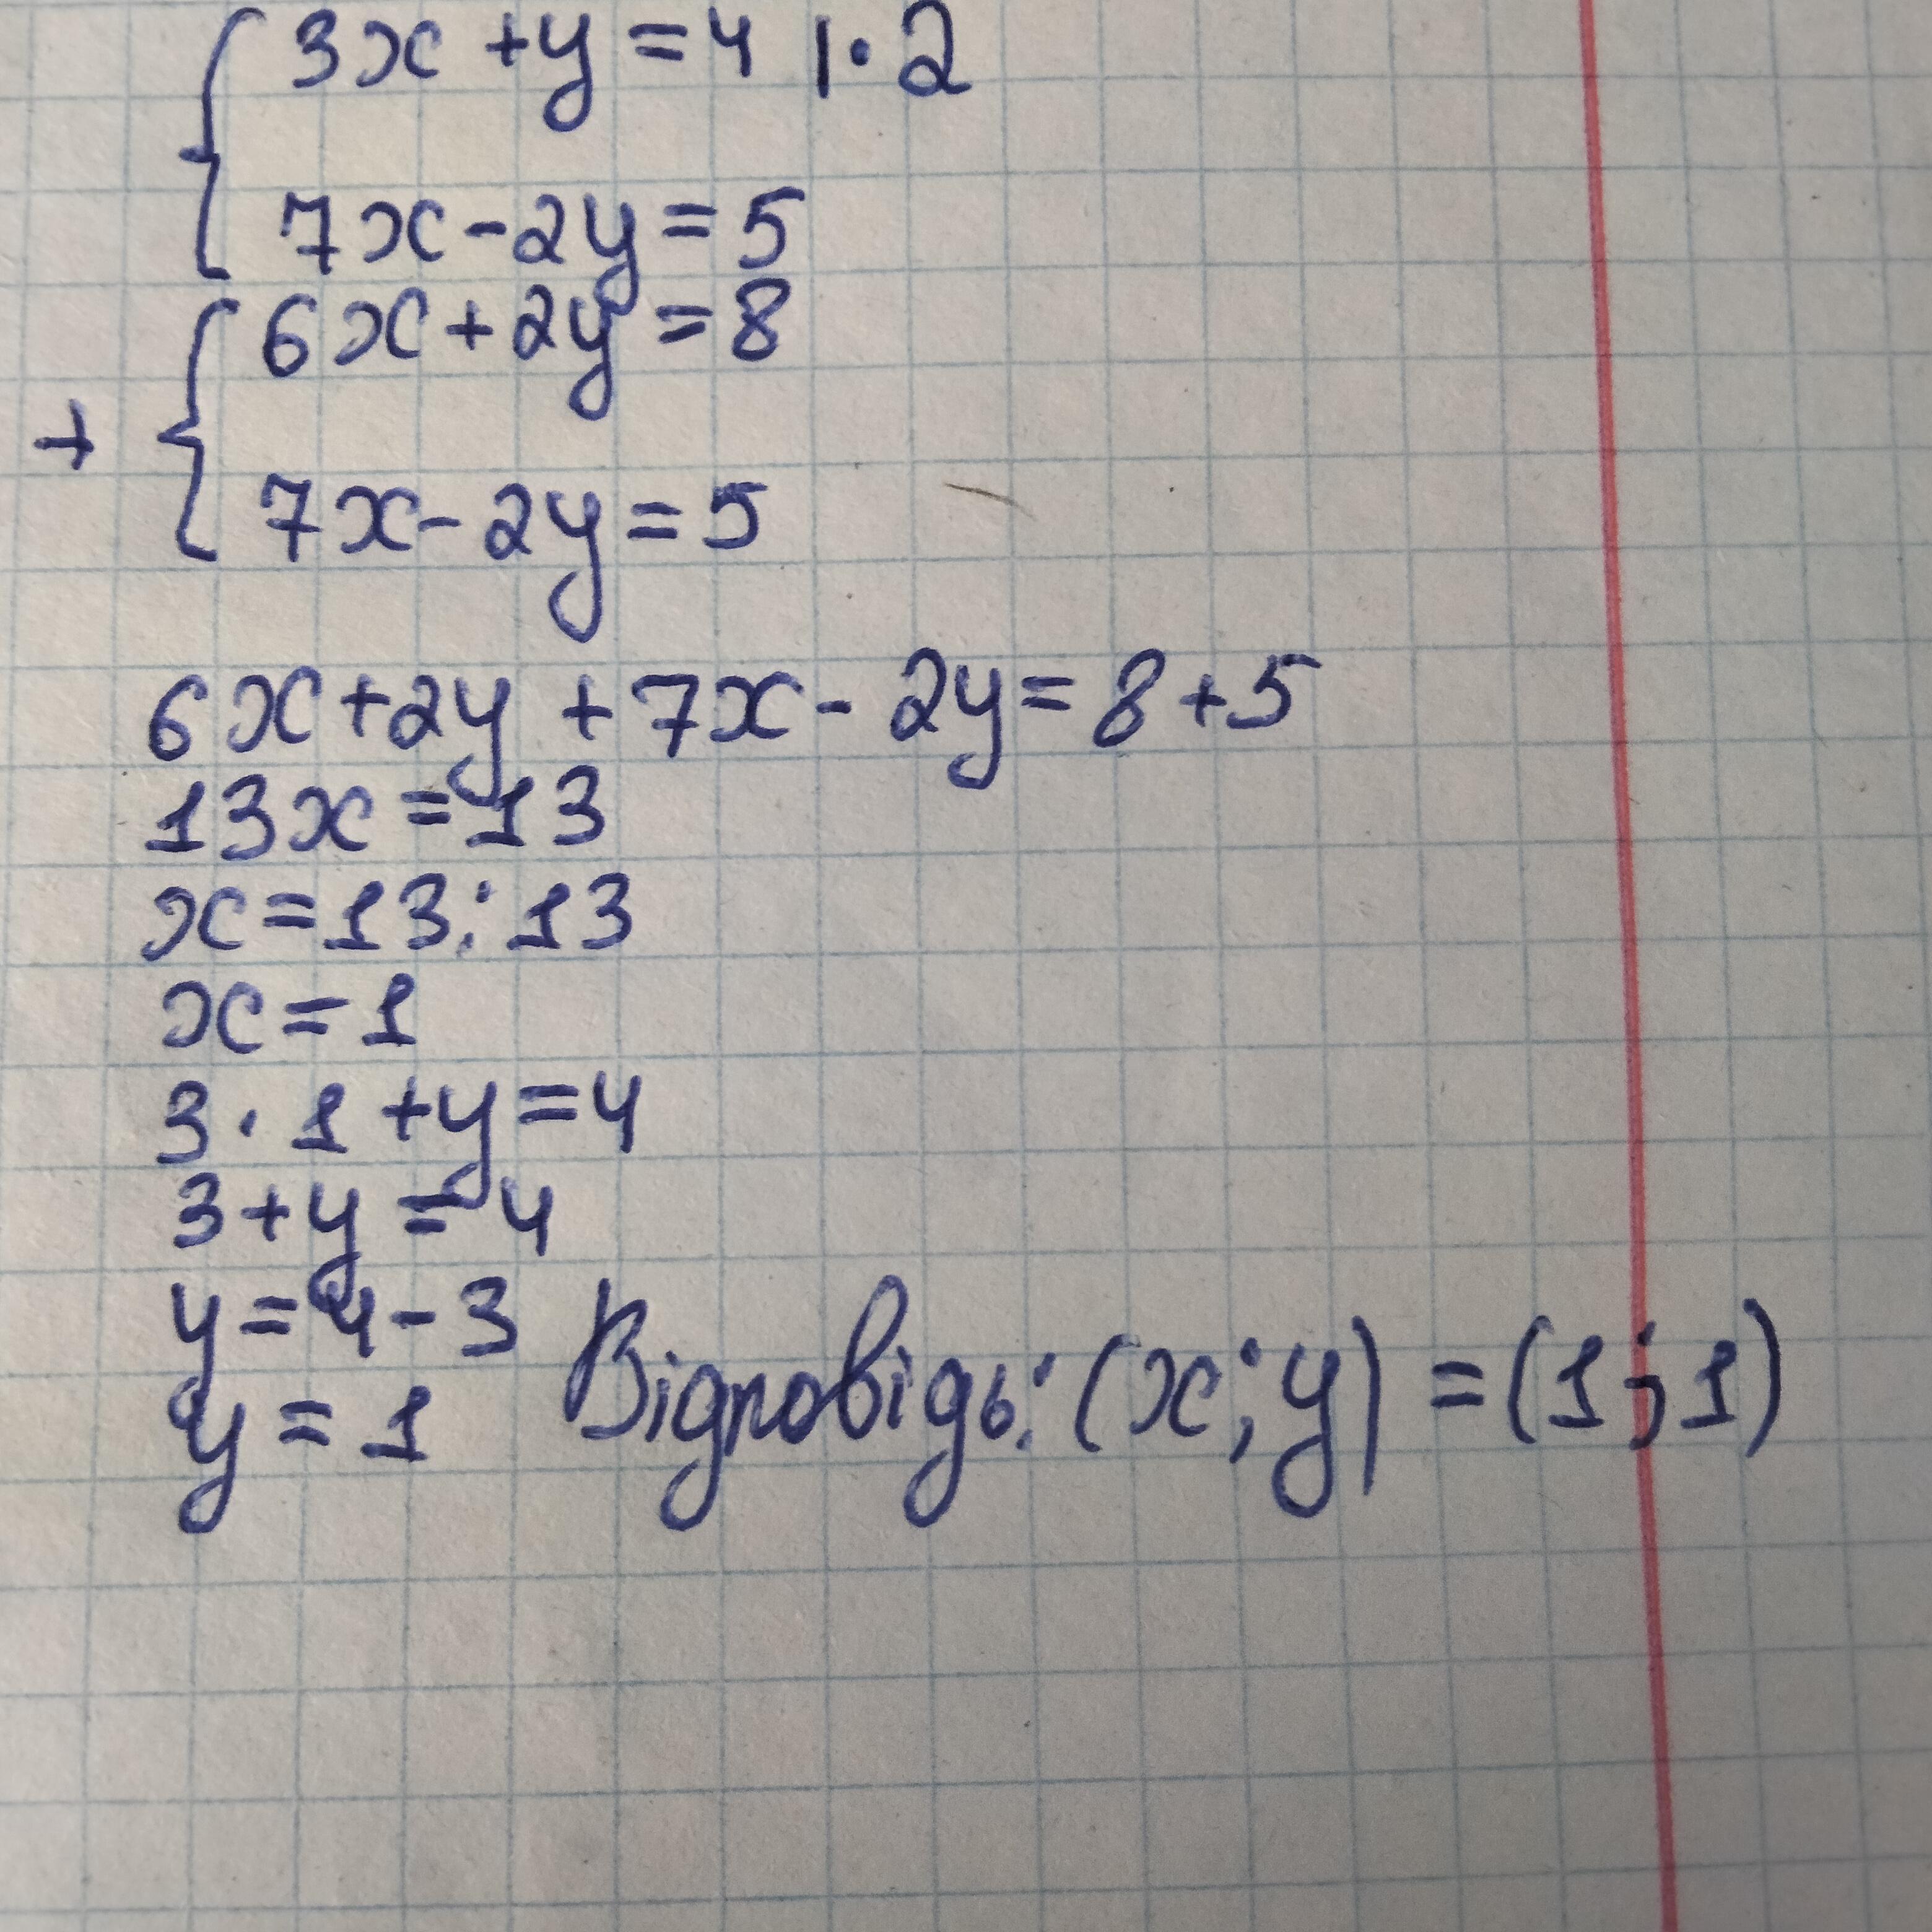 { 3x + y = 4 | · 2
7x - 2y = 5
+ { 6x + 2y = 8
7x - 2y = 5
6x + 2y + 7x - 2y = 8 + 5
13x = 13
x = 13 : 13
x = 1
3 · 1 + y = 4
3 + y = 4
y = 4 - 3
y = 1 Відповідь: (x; y) = (1; 1)